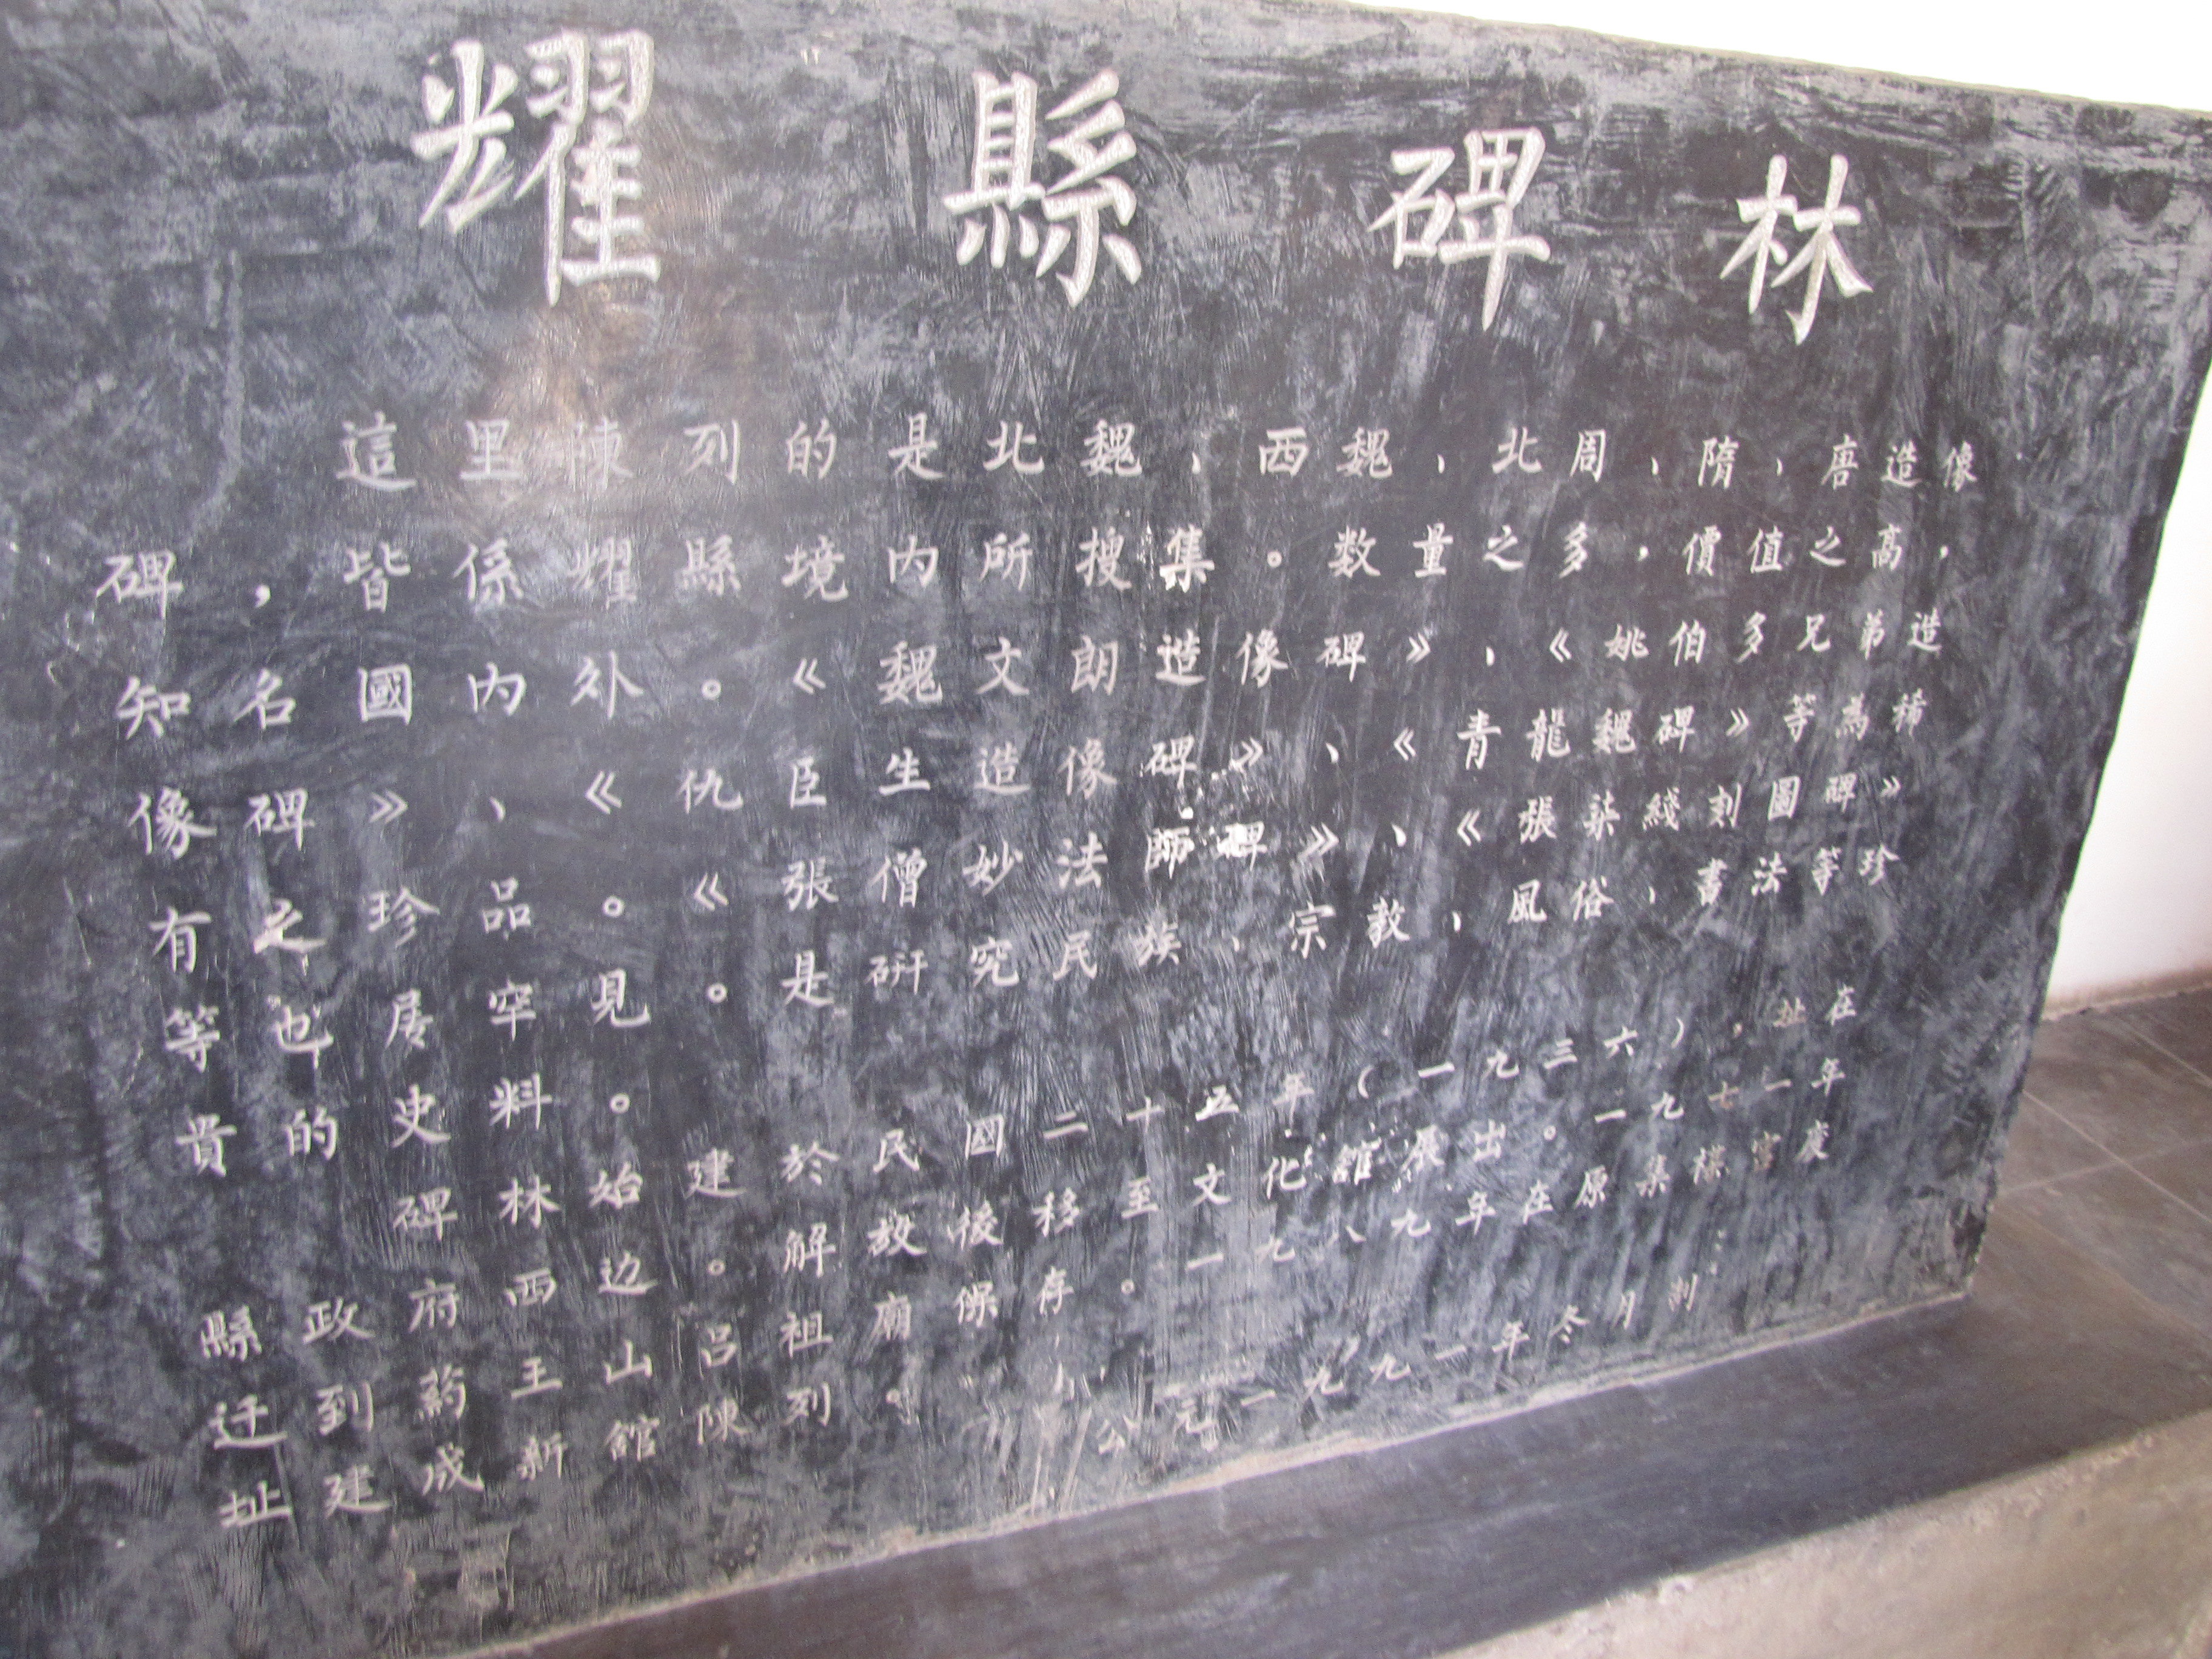 耀縣碑林
這里陳列的是北魏、西魏、北周、隋、唐造像
碑，皆係耀縣境内所搜集。数量之多，價值之高，
知名國内外。《魏文朗造像碑》、《姚伯多兄弟造
像碑》、《仇臣生造像碑》、《青龍魏碑》等為稀
有之珍品。《張僧妙法師碑》、《張柒綫刻圖碑》
等也居罕見。是研究民族、宗教、風俗、書法等珍
貴的史料。
碑林始建於民國二十五年（一九三六），址在
縣政府西边。解放後移至文化舘展出。一九七一年
迁到葯王山呂祖廟保存。一九八九年在原集禖宫废
址建成新舘陳列。
公元一九九一年冬月制